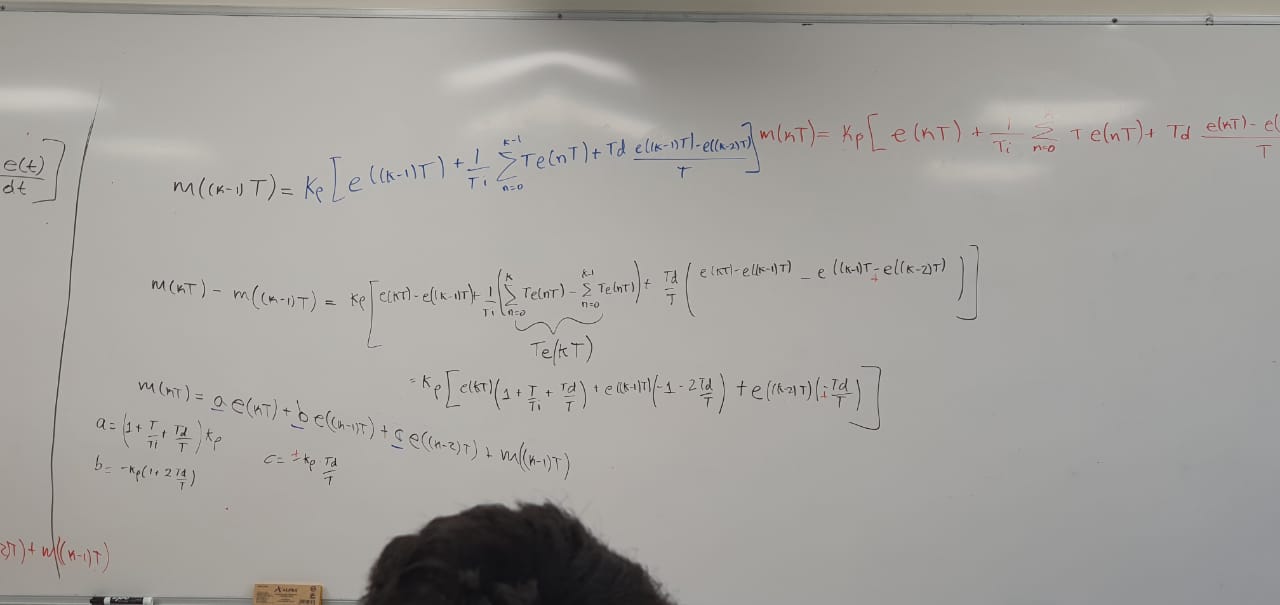 e(t)/dt]
m((k-1)T) = Kp[e((k-1)T) + 1/Ti Σ_{n=0}^{k-1} Te(nT) + Td (e((k-1)T) - e((k-2)T))/T]
m(kT) = Kp[e(kT) + 1/Ti Σ_{n=0} Te(nT) + Td (e(kT) - e(/T
m(kT) - m((k-1)T) = Kp[e(kT) - e((k-1)T) + 1/Ti(Σ_{n=0}^{k} Te(nT) - Σ_{n=0}^{k-1} Te(nT)) + Td/T(e(kT) - e((k-1)T) - e((k-1)T) + e((k-2)T))]
Te(kT)
= Kp[e(kT)(1 + T/Ti + Td/T) + e((k-1)T)(-1 - 2Td/T) + e((k-2)T)(+Td/T)]
m(kT) = a e(kT) + b e((k-1)T) + c e((k-2)T) + m((k-1)T)
a = (1 + T/Ti + Td/T)Kp
b = -Kp(1 + 2Td/T)
c = +Kp · Td/T
2)T) + m((k-1)T)